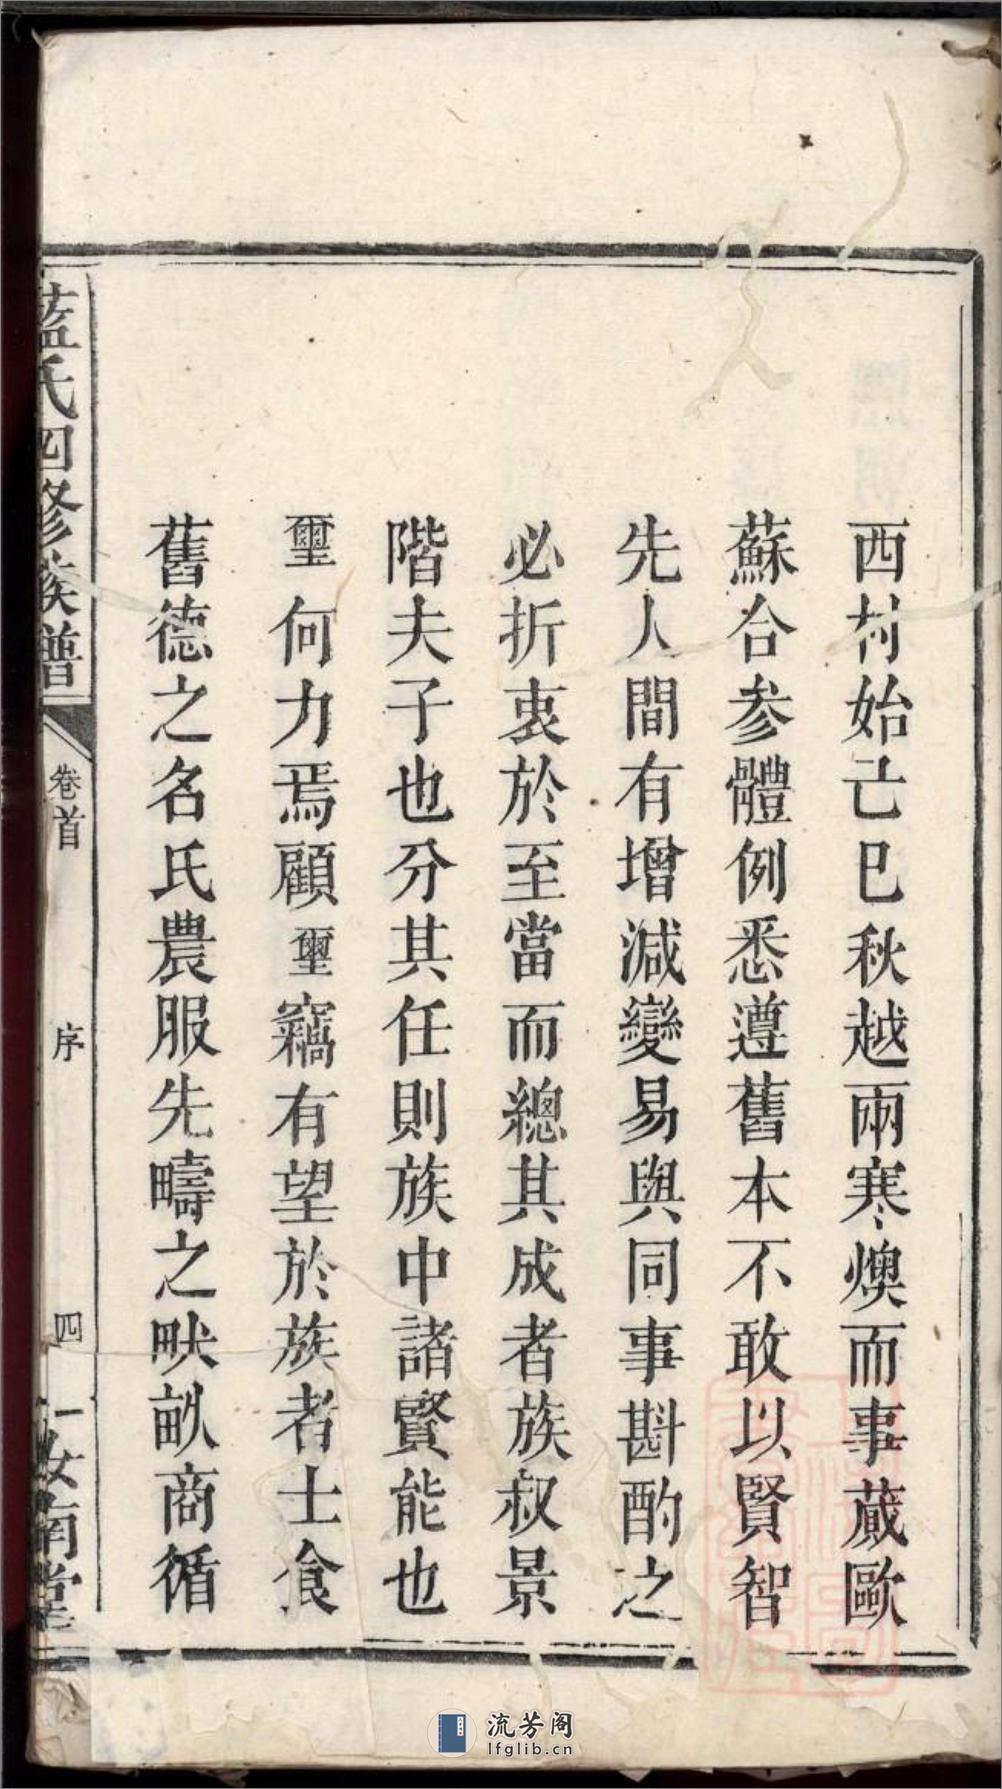 西村始亡巳秋越兩寒燠而事蕆歐
蘇合参體例悉遵舊本不敢以賢智
先人間有增減變易與同事斟酌之
必折衷於至當而總其成者族叔景
階夫子也分其任則族中諸賢能也
璽何力焉顧璽竊有望於族者士食
舊德之名氏農服先疇之畎畝商循
藍氏四修族譜
卷首
序
四
汝南堂
流芳阁
lfglib.cn